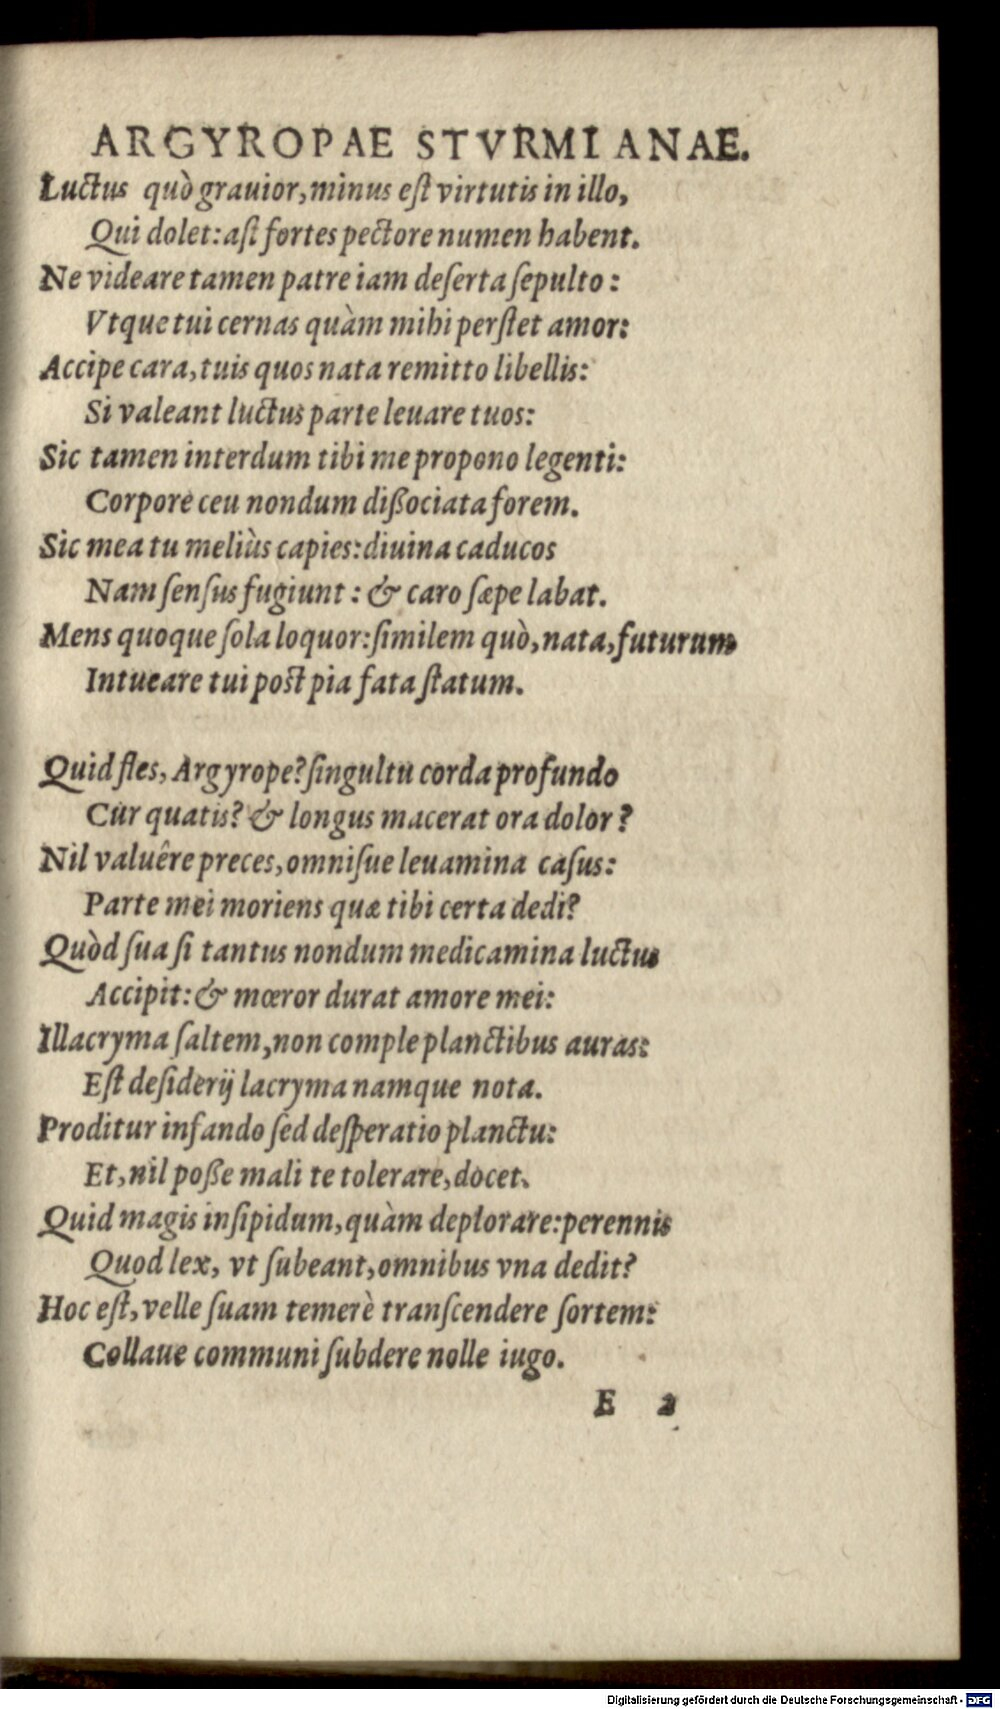 ARGYROPAE STVRMIANAE.
Luctus quò grauior, minus eſt virtutis in illo,
Qui dolet: aſt fortes pectore numen habent.
Ne videare tamen patre iam deſerta ſepulto:
Vtque tui cernas quàm mihi perſtet amor:
Accipe cara, tuis quos nata remitto libellis:
Si valeant luctus parte leuare tuos:
Sic tamen interdum tibi me propono legenti:
Corpore ceu nondum dißociata forem.
Sic mea tu meliùs capies: diuina caducos
Nam ſenſus fugiunt: & caro ſæpe labat.
Mens quoque ſola loquor: ſimilem quò, nata, futurum
Intueare tui poſt pia fata ſtatum.
Quid fles, Argyrope? ſingultu corda profundo
Cur quatis? & longus macerat ora dolor?
Nil valuêre preces, omniſue leuamina caſus:
Parte mei moriens quæ tibi certa dedi?
Quòd ſua ſi tantus nondum medicamina luctus
Accipit: & mœror durat amore mei:
Illacryma ſaltem, non comple planctibus auras:
Eſt deſiderij lacryma namque nota.
Proditur infando ſed deſperatio planctu:
Et, nil poße mali te tolerare, docet.
Quid magis inſipidum, quàm deplorare: perennis
Quod lex, vt ſubeant, omnibus vna dedit?
Hoc eſt, velle ſuam temerè tranſcendere ſortem:
Collaue communi ſubdere nolle iugo.
E 2
Digitalisierung gefördert durch die Deutsche Forschungsgemeinschaft - DFG